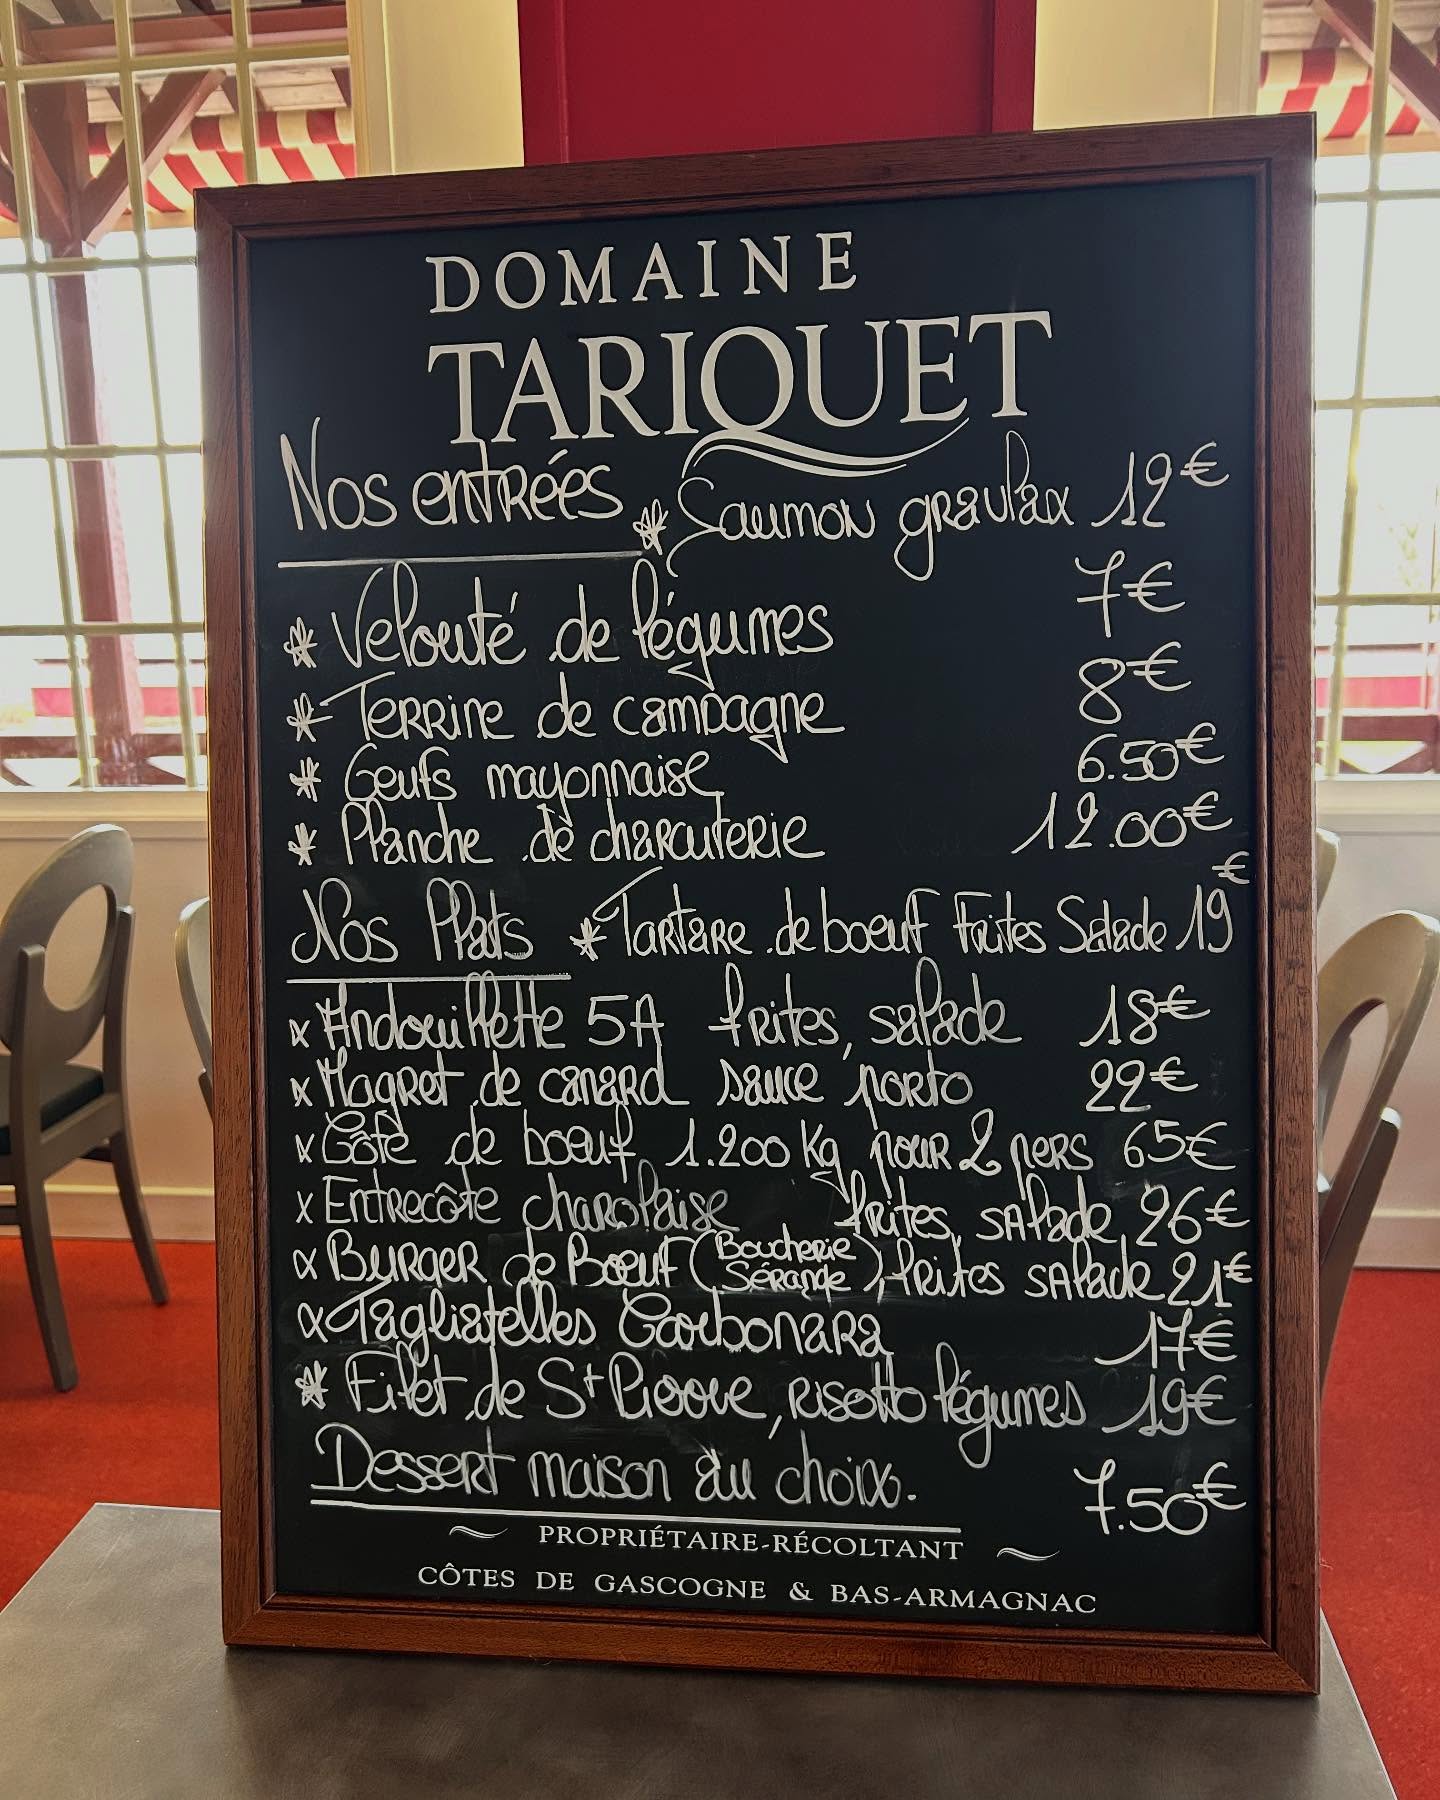 DOMAINE
TARIQUET
Nos entrées * Saumon gravlax 12€
* Velouté de légumes 7€
* Terrine de campagne 8€
* Oeufs mayonnaise 6.50€
* Planche de charcuterie 12.00€
Nos Plats * Tartare de boeuf Frites Salade 19€
x Andouillette 5A frites, salade 18€
x Magret de canard sauce porto 22€
x Côte de boeuf 1.200 Kg pour 2 pers 65€
x Entrecôte charolaise frites, salade 26€
x Burger de Boeuf (Boucherie Sérange), frites salade 21€
x Tagliatelles Carbonara 17€
* Filet de St Pierre, risotto légumes 19€
Dessert maison au choix. 7.50€
PROPRIÉTAIRE-RÉCOLTANT
CÔTES DE GASCOGNE & BAS-ARMAGNAC